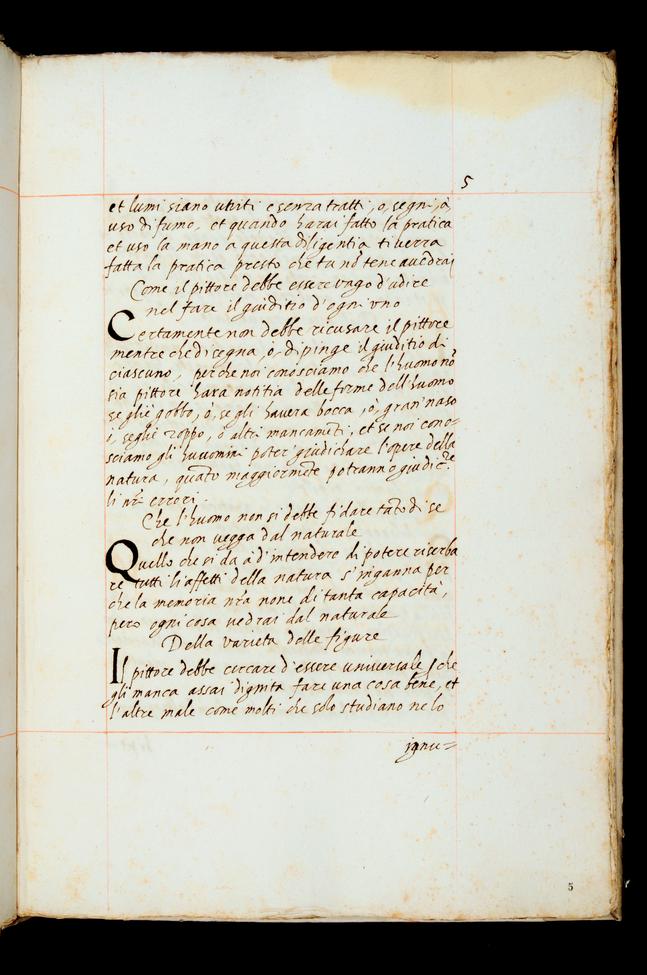 5
et lumi siano uniti e senza tratti, o, segni, à
uso di fumo, et quando harai fatto la pratica
et uso la mano a questa diligentia ti verra
fatta la pratica presto che tu nõ te ne avedrai
Come il pittore debbe essere vago d'udire
nel fare il giuditio d'ogni uno
Certamente non debbe ricusare il pittore
mentre che disegna, o, dipinge il giuditio di
ciascuno, perche noi conosciamo che l'huomo nõ
sia pittore hara notitia delle forme dell'huomo
se gliè gobbo, ò, se gli havera bocca, ò, gran' naso
, se gliè zoppo, o altri mancamẽti, et se noi cono=
sciamo gli huomini poter' giudichare l'opere della
natura, quãto maggiormẽte potranno giudicare
li nr̃i errori.
Che l'huomo non si debbe fidare tãto di se
che non vegga dal naturale
Quello che si da à d'intendere di potere riserba
re tutti li affetti della natura s'inganna per
che la memoria nr̃a non è di tanta capacità,
pero ogni cosa vedrai dal naturale
Della varieta delle figure
Il pittore debbe cercare d'essere universale perche
gli manca assai dignita fare una cosa bene, et
l'altre male come molti che solo studiano ne lo
ignu=
5